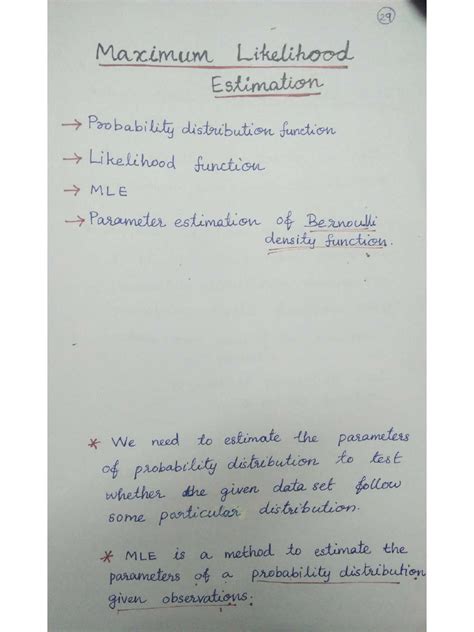 29
Maximum Likelihood
Estimation
→ Probability distribution function
→ Likelihood function
→ MLE
→ Parameter estimation of Bernoulli
density function.
* We need to estimate the parameters
of probability distribution to test
whether the given data set follow
some particular distribution.
* MLE is a method to estimate the
parameters of a probability distribution
given observations.